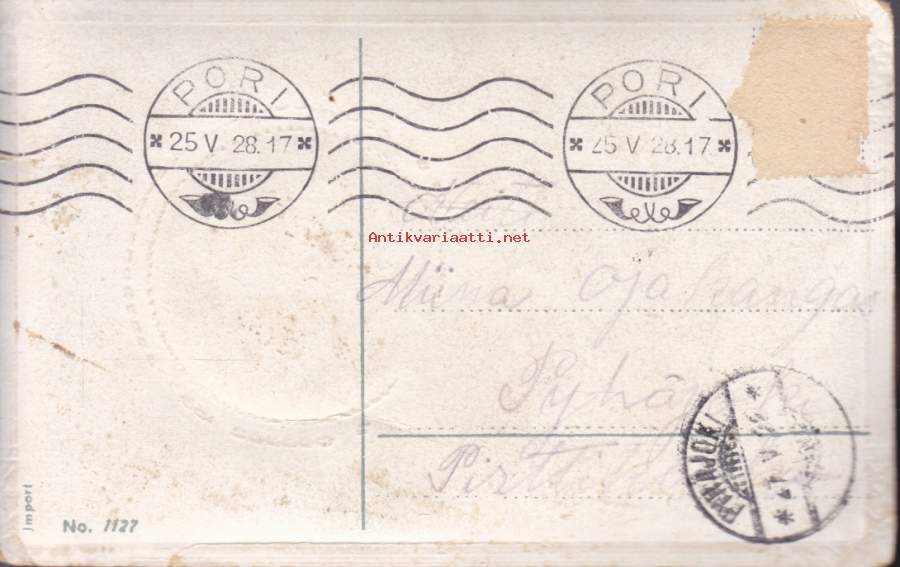 PORI
25 V 28.17
PORI
25 V 28.17
Neiti
Antikvariaatti.net
Miina Ojakangas
PYHÄJOKI
Import
No. 1127